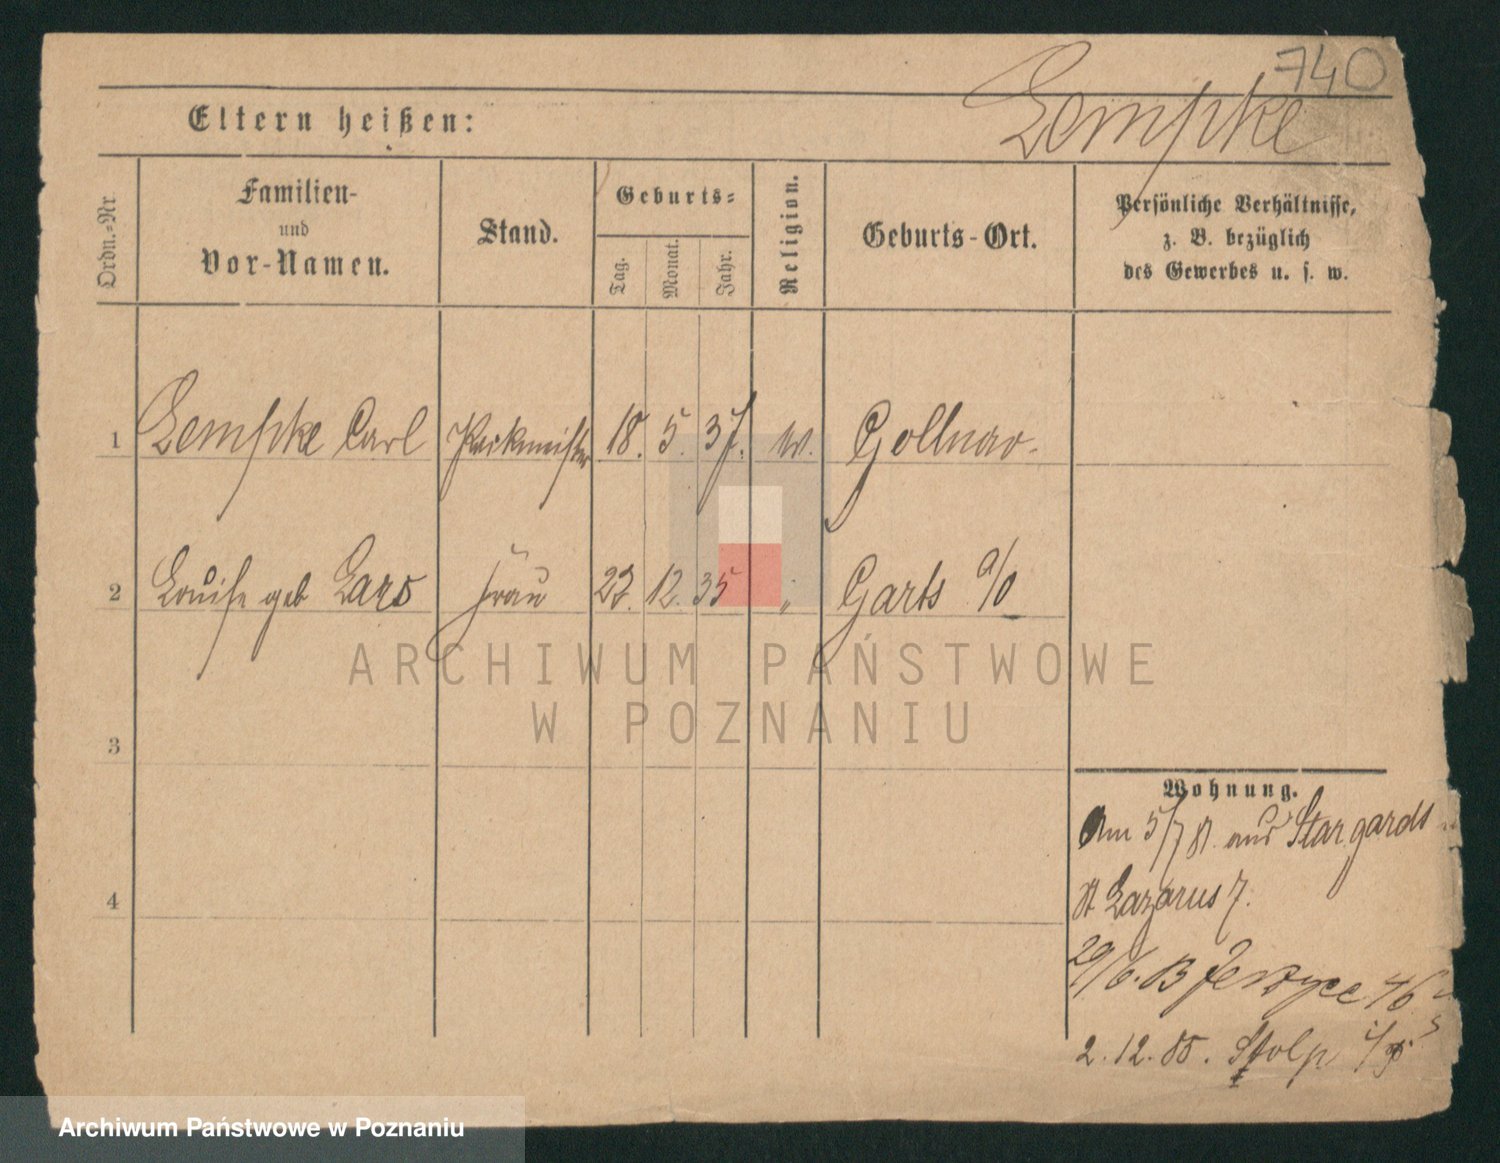 740
Eltern heißen: Lempke
Ordn.-Nr
Familien-
und
Vor-Namen.
Stand.
Geburts-
Tag.
Monat.
Jahr.
Religion.
Geburts-Ort.
Persönliche Verhältnisse,
z. B. bezüglich
des Gewerbes u. s. w.
1 Lempke Carl Packmeister 18. 5. 37. Gollnow.
2 Louise geb Frau 12. 35 " Garts a/O
3
4
Wohnung.
Am 5/7 81. aus Stargardt
St Lazarus 7.
29/6. Jerzyce
2.12.85. Stolp i/P
ARCHIWUM PAŃSTWOWE
W POZNANIU
Archiwum Państwowe w Poznaniu